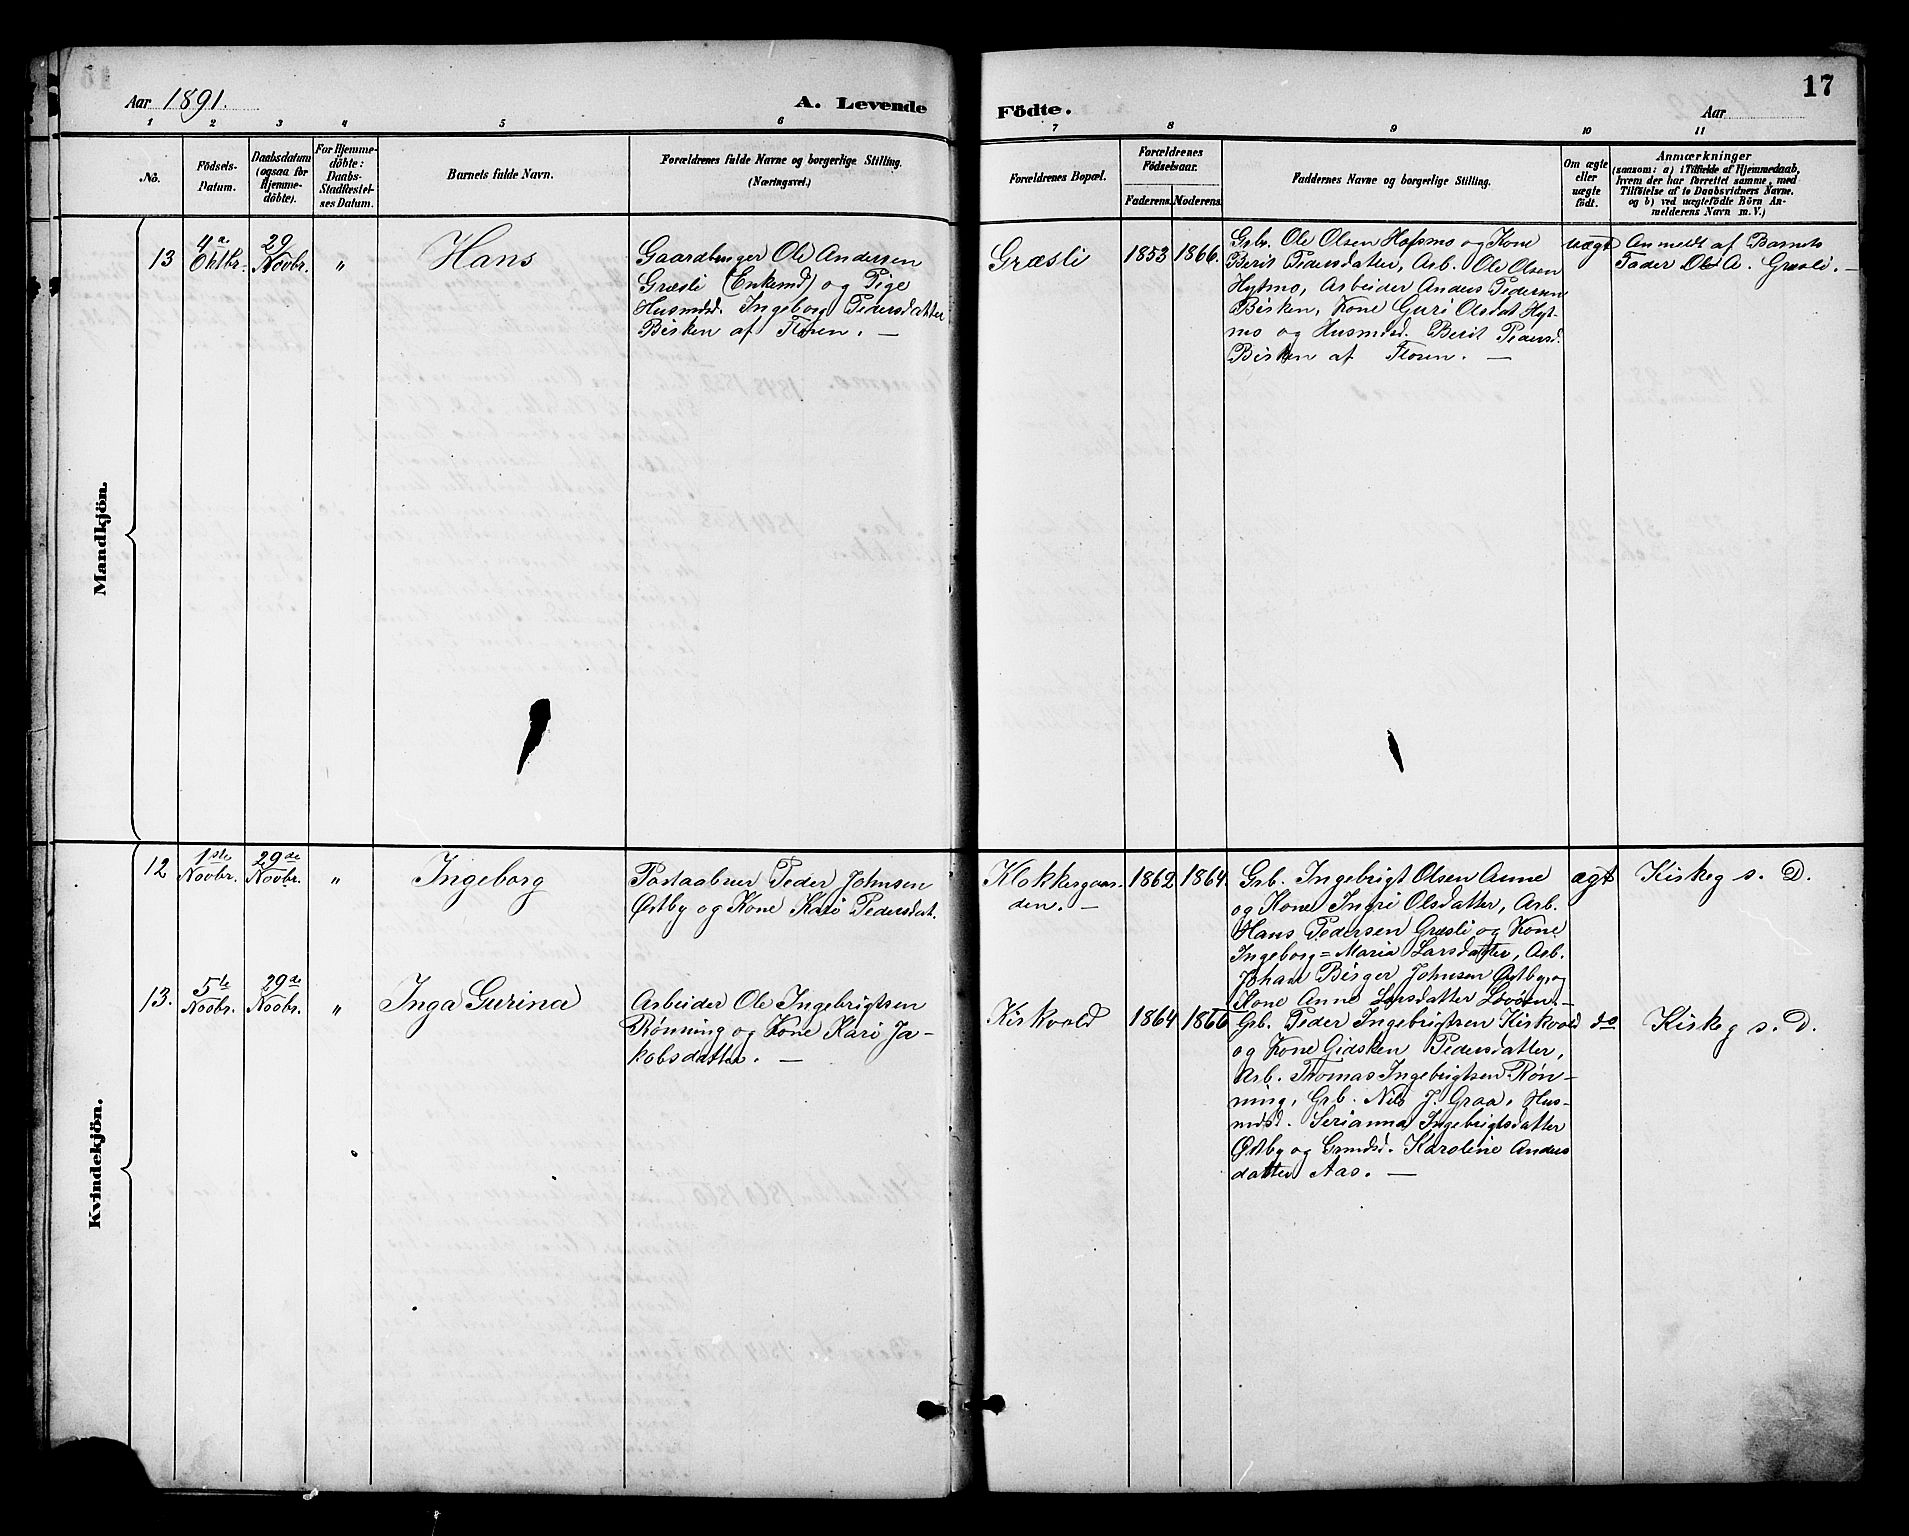 Aar 1891.
A. Levende
Födte.
Aar
17
1 2 3 4 5 6 7 8 9 10 11
No.
Födsels-
Datum.
Daabsdatum
(ogsaa for
Hjemme-
döbte).
For Hjemme-
döbte:
Daabs-
Stadfæstel-
ses Datum.
Barnets fulde Navn.
Forældrenes fulde Navne og borgerlige Stilling.
(Næringsvei.)
Forældrenes Bopæl.
Forældrenes
Födselsaar.
Faderens. Moderens.
Faddernes Navne og borgerlige Stilling.
Om ægte
eller
uægte
födt.
Anmærkninger
(saasom: a) i Tilfælde af Hjemmedaab,
hvem der har forrettet samme, med
Tilföielse af to Daabsvidners Navne.
og b) ved uægtefödte Börn An-
melderens Navn m. V.)
Mandkjön.
13
4de
Oktbr.
29
Novbr.
"
Hans
Gaardbruger Ole Andersen
Græsli (Enkemd) og Pige
Husmdsd. Ingeborg Pedersdatter
Birken af Floren. —
Græsli
1853 1866.
Grbr. Ole Olsen Hofsmo og Kone
Berit Pedersdatter, Arb. Ole Olsen
Hytmo, Arbeider Anders Pedersen
Birken, Kone Guri Olsdat Hyt-
mo og Husmdsd. Berit Pedersd.
Birken af Floren. —
uægt
Anmeldt af Barnets
Fader Ole A. Græsli. —
Kvindekjön.
12
1ste
Novbr.
29de
Novbr.
"
Ingeborg
Postaabner Peder Johnsen
Østby og Kone Kari Pedersdat.
Klokkergaar-
den. —
1862 1864.
Grb. Ingebrigt Olsen Aune
og Kone Ingri Olsdatter, Arb.
Hans Pedersen Græsli og Kone
Ingeborg=Maria Larsdatter, Arb.
Johan Birger Johnsen Østby og
Kone Anne Larsdatter Lövöen. —
ægt
Kirkeg s. D.
13.
5te
Novbr.
29de
Novbr.
"
Inga Gurina
Arbeider Ole Ingebrigtsen
Rönning og Kone Kari Ja-
kobsdatter. —
Kirkvold
1864 1866
Grb. Peder Ingebrigtsen Kirkvold
og Kone Gidsken Pedersdatter,
Arb. Thomas Ingebrigtsen Rön-
ning, Grb. Nils J. Graa, Hus-
mdsd. Serianna Ingebrigtsdatter
Østby og Grmdsd. Karoline Anders
datter Aas. —
do
Kirkeg s. D.